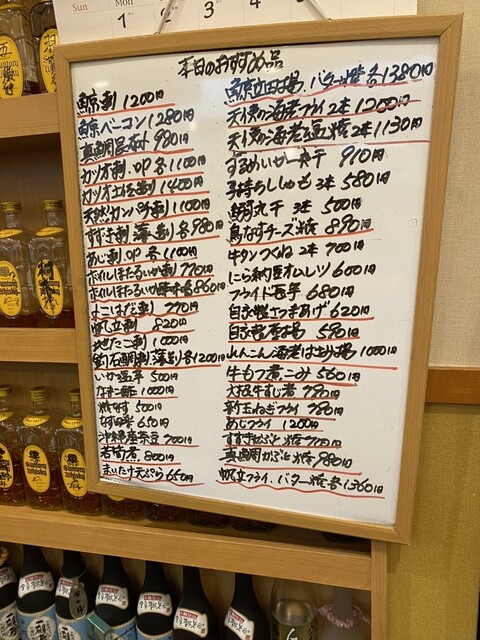 Sun Mon
1 2 3 4
本日のおすすめ品
鯨刺 1200円
鯨ベーコン 1280円
真鯛昆布〆 980円
カツオ刺、叩 各1100円
カツオ土佐造り 1400円
天然カンパチ刺 1100円
すずき刺 薄造り各980円
あじ刺、叩 各1100円
ボイルほたるいか刺 770円
ボイルほたるいか酢味噌 860円
よこはだ刺 770円
帆立刺 820円
地だこ刺 1000円
釣石鯛刺 薄造り各1200円
いか塩辛 500円
なまこ酢 1000円
焼なす 500円
なす田楽 650円
沖縄産茶豆 700円
若筍煮 800円
まいたけ天ぷら 650円
鯨立田揚、バター焼 各1380円
天使の海老フライ 2本 1200円
天使の海老塩焼 2本 1130円
するめいか一夜干 910円
子持ちししゃも 3本 580円
鰯丸干 3本 500円
鳥なすチーズ焼 890円
牛タンつくね 2本 700円
にら納豆オムレツ 600円
フライド長芋 680円
自家製さつまあげ 620円
自家製厚揚 590円
れんこん海老はさみ揚 1000円
牛もつ煮こみ 560円
大根牛すじ煮 780円
新玉ねぎフライ 780円
あじフライ 1200円
すずきかぶと焼 700円
真鯛かぶと焼 980円
帆立フライ、バター焼 各1360円